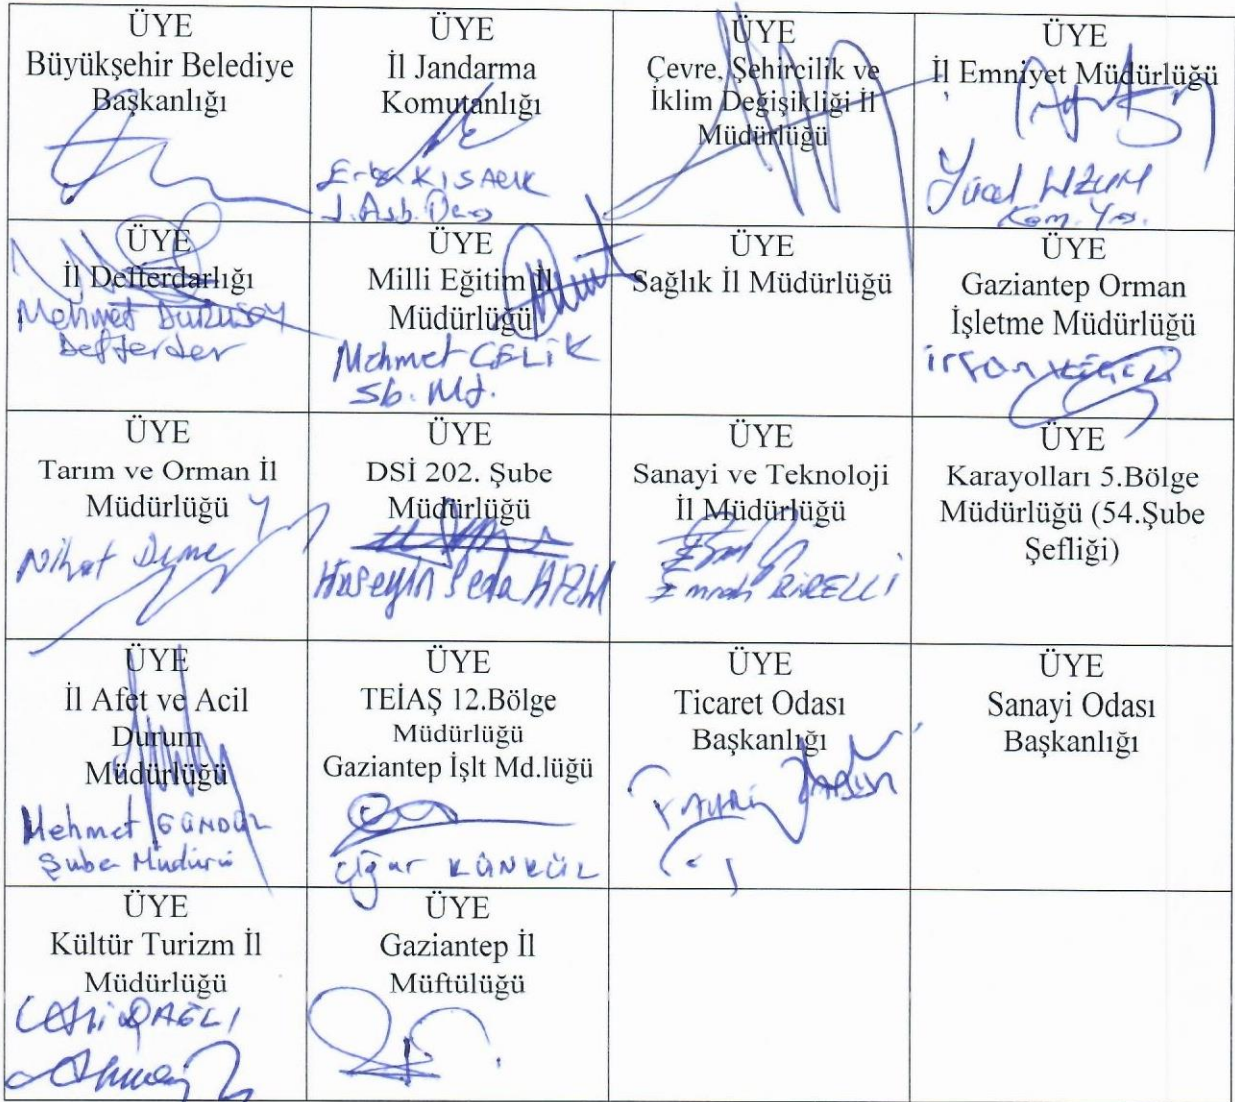 ÜYE
Büyükşehir Belediye
Başkanlığı
ÜYE
İl Jandarma
Komutanlığı
KISAÇIK
J.Asb.
ÜYE
Çevre, Şehircilik ve
İklim Değişikliği İl
Müdürlüğü
ÜYE
İl Emniyet Müdürlüğü
Yücel UZUM
Kom. Yrd.
ÜYE
İl Defterdarlığı
Mehmet DURUSOY
Defterder
ÜYE
Milli Eğitim İl
Müdürlüğü
Mehmet ÇELİK
Şb. Md.
ÜYE
Sağlık İl Müdürlüğü
ÜYE
Gaziantep Orman
İşletme Müdürlüğü
irfan
ÜYE
Tarım ve Orman İl
Müdürlüğü
Nihat
ÜYE
DSİ 202. Şube
Müdürlüğü
Hüseyin Seda
ÜYE
Sanayi ve Teknoloji
İl Müdürlüğü
Emrah BİRELLİ
ÜYE
Karayolları 5.Bölge
Müdürlüğü (54.Şube
Şefliği)
ÜYE
İl Afet ve Acil
Durum
Müdürlüğü
Mehmet GÜNDÜZ
Şube Müdürü
ÜYE
TEİAŞ 12.Bölge
Müdürlüğü
Gaziantep İşlt Md.lüğü
KÜNKÜL
ÜYE
Ticaret Odası
Başkanlığı
ÜYE
Sanayi Odası
Başkanlığı
ÜYE
Kültür Turizm İl
Müdürlüğü
DAĞLI
ÜYE
Gaziantep İl
Müftülüğü